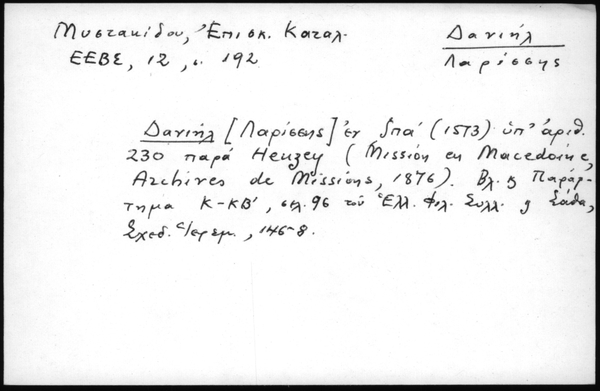 Μυστακίδου, Ἐπισκ. Καταλ.
ΕΕΒΣ, 12, σ. 192
Δανιήλ
Λαρίσσης
Δανιήλ [Λαρίσσης] ἐν ζπά (1573) ὑπ' ἀριθ.
230 παρά Heuzey (Mission en Macedoine,
Archives de Missions, 1876). Βλ. ϗ Παράρ-
τημα Κ-ΚΒ', σελ. 96 τοῦ Ἑλλ. Φιλ. Συλλ. ϗ Σάθα,
Σχεδ. Ἱερεμ., 145-8.